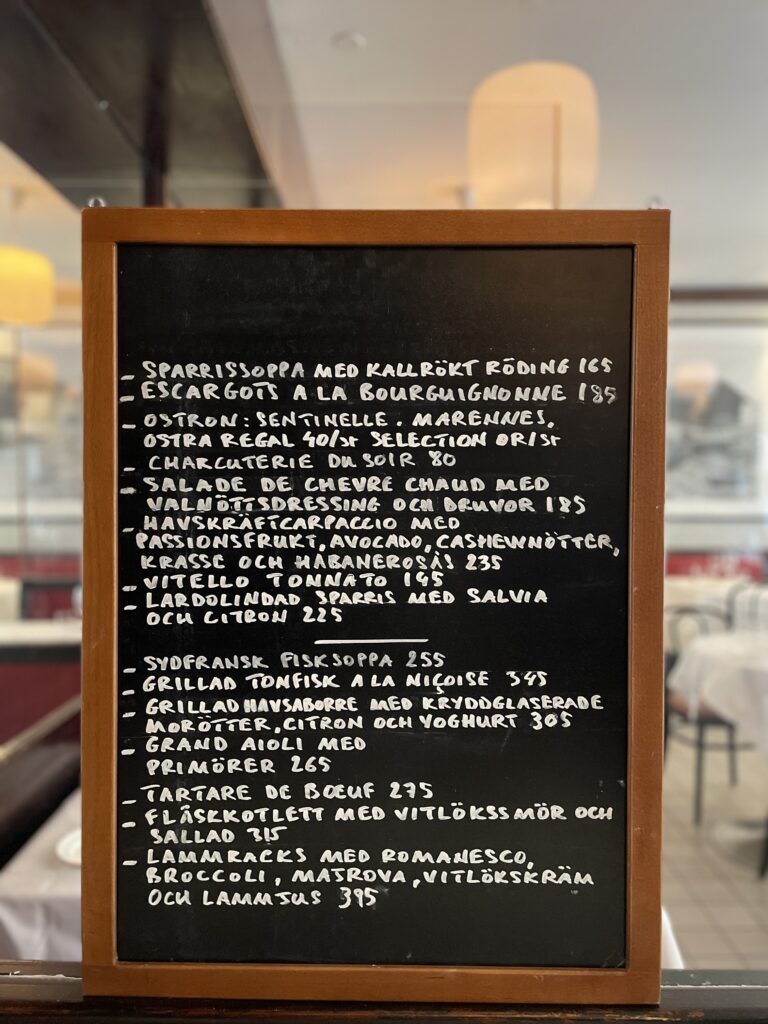 - SPARRISSOPPA MED KALLRÖKT RÖDING 165
- ESCARGOTS A LA BOURGUIGNONNE 185
- OSTRON: SENTINELLE. MARENNES,
OSTRA REGAL 40/ST SELECTION OR/ST
- CHARCUTERIE DU SOIR 80
- SALADE DE CHEVRE CHAUD MED
VALNÖTTSDRESSING OCH DRUVOR 185
- HAVSKRÄFTCARPACCIO MED
PASSIONSFRUKT, AVOCADO, CASHEWNÖTTER,
KRASSE OCH HABANEROSÅS 235
- VITELLO TONNATO 195
- LARDOLINDAD SPARRIS MED SALVIA
OCH CITRON 225
- SYDFRANSK FISKSOPPA 255
- GRILLAD TONFISK A LA NIÇOISE 345
- GRILLAD HAVSABORRE MED KRYDDGLASERADE
MORÖTTER, CITRON OCH YOGHURT 305
- GRAND AIOLI MED
PRIMÖRER 265
- TARTARE DE BŒUF 275
- FLÄSKKOTLETT MED VITLÖKSSMÖR OCH
SALLAD 315
- LAMMRACKS MED ROMANESCO,
BROCCOLI, MAJROVA, VITLÖKSKRÄM
OCH LAMMJUS 395